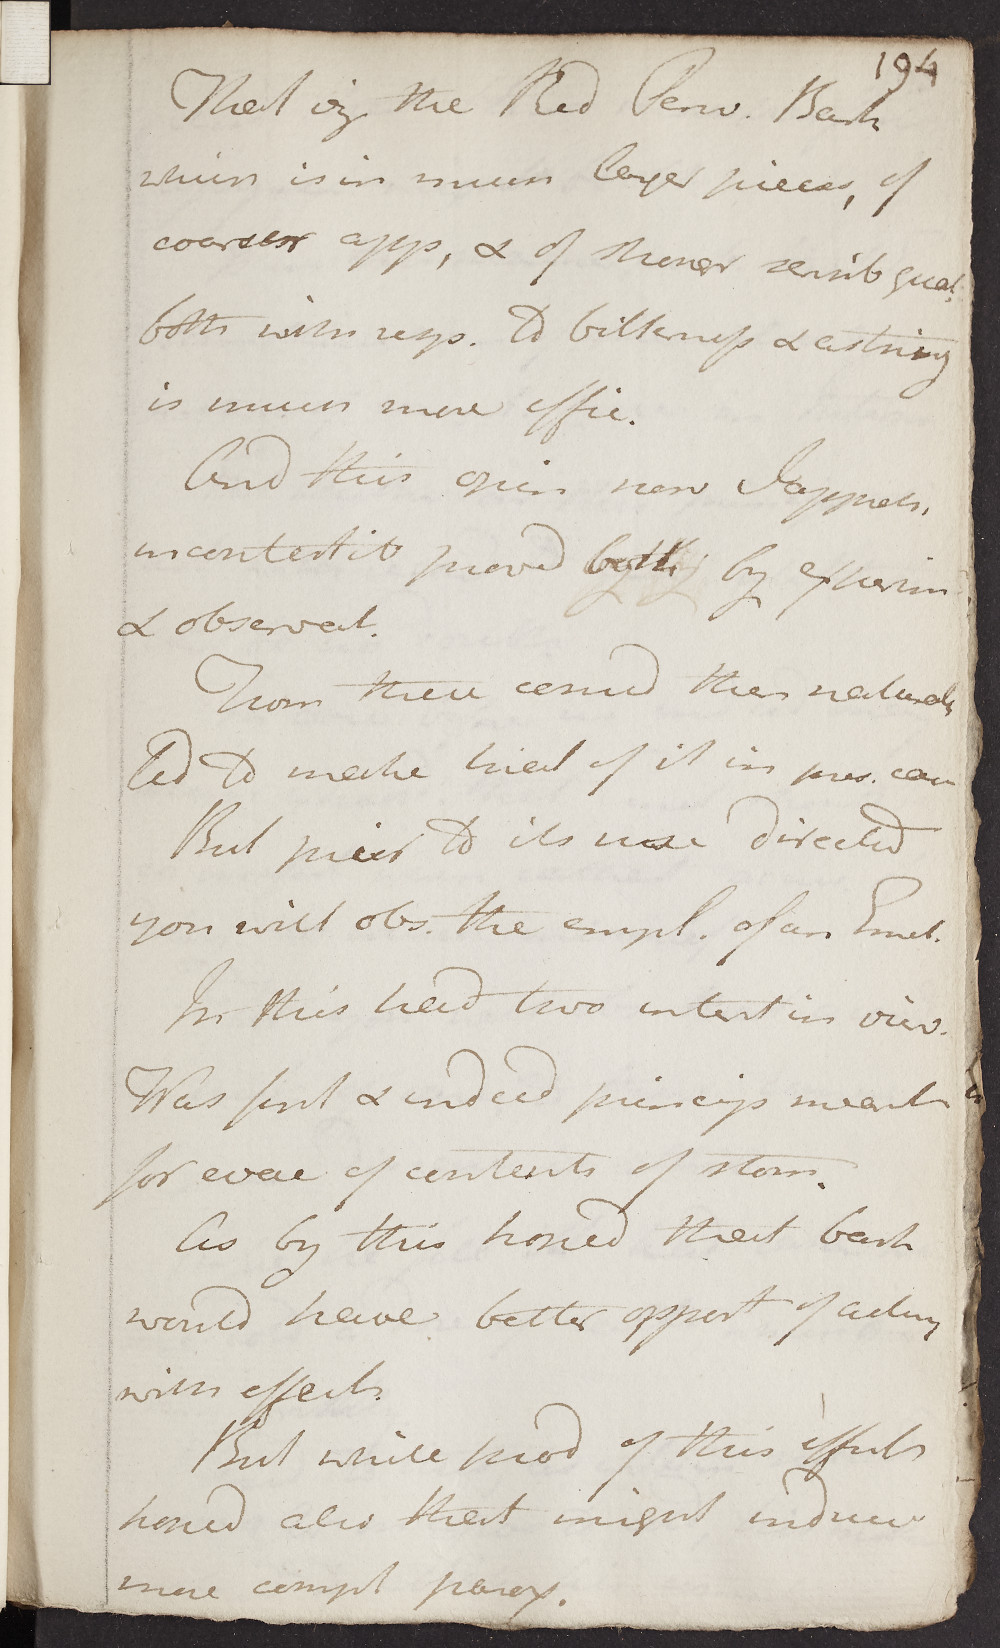 194
That viz the Red Peruv. Bark
which is in much larger pieces, of
coarser app, & of stronger sensib qual.
both with resp. to bitterness & astring
is much more effic.
And this opin now I appreh.
incontestib proved by experim
& observat.
From these consid then naturaly
led to make trial of it in pres. case
But prior to its use directed
you will obs. the empl. of an Emet.
In this had two intent in view.
Was first & indeed princip meant
for evac of contents of stom.
As by this hoped that bark
would have better opport of acting
with effect.
But while prod of this effect
hoped also that might induce
more compl parox.